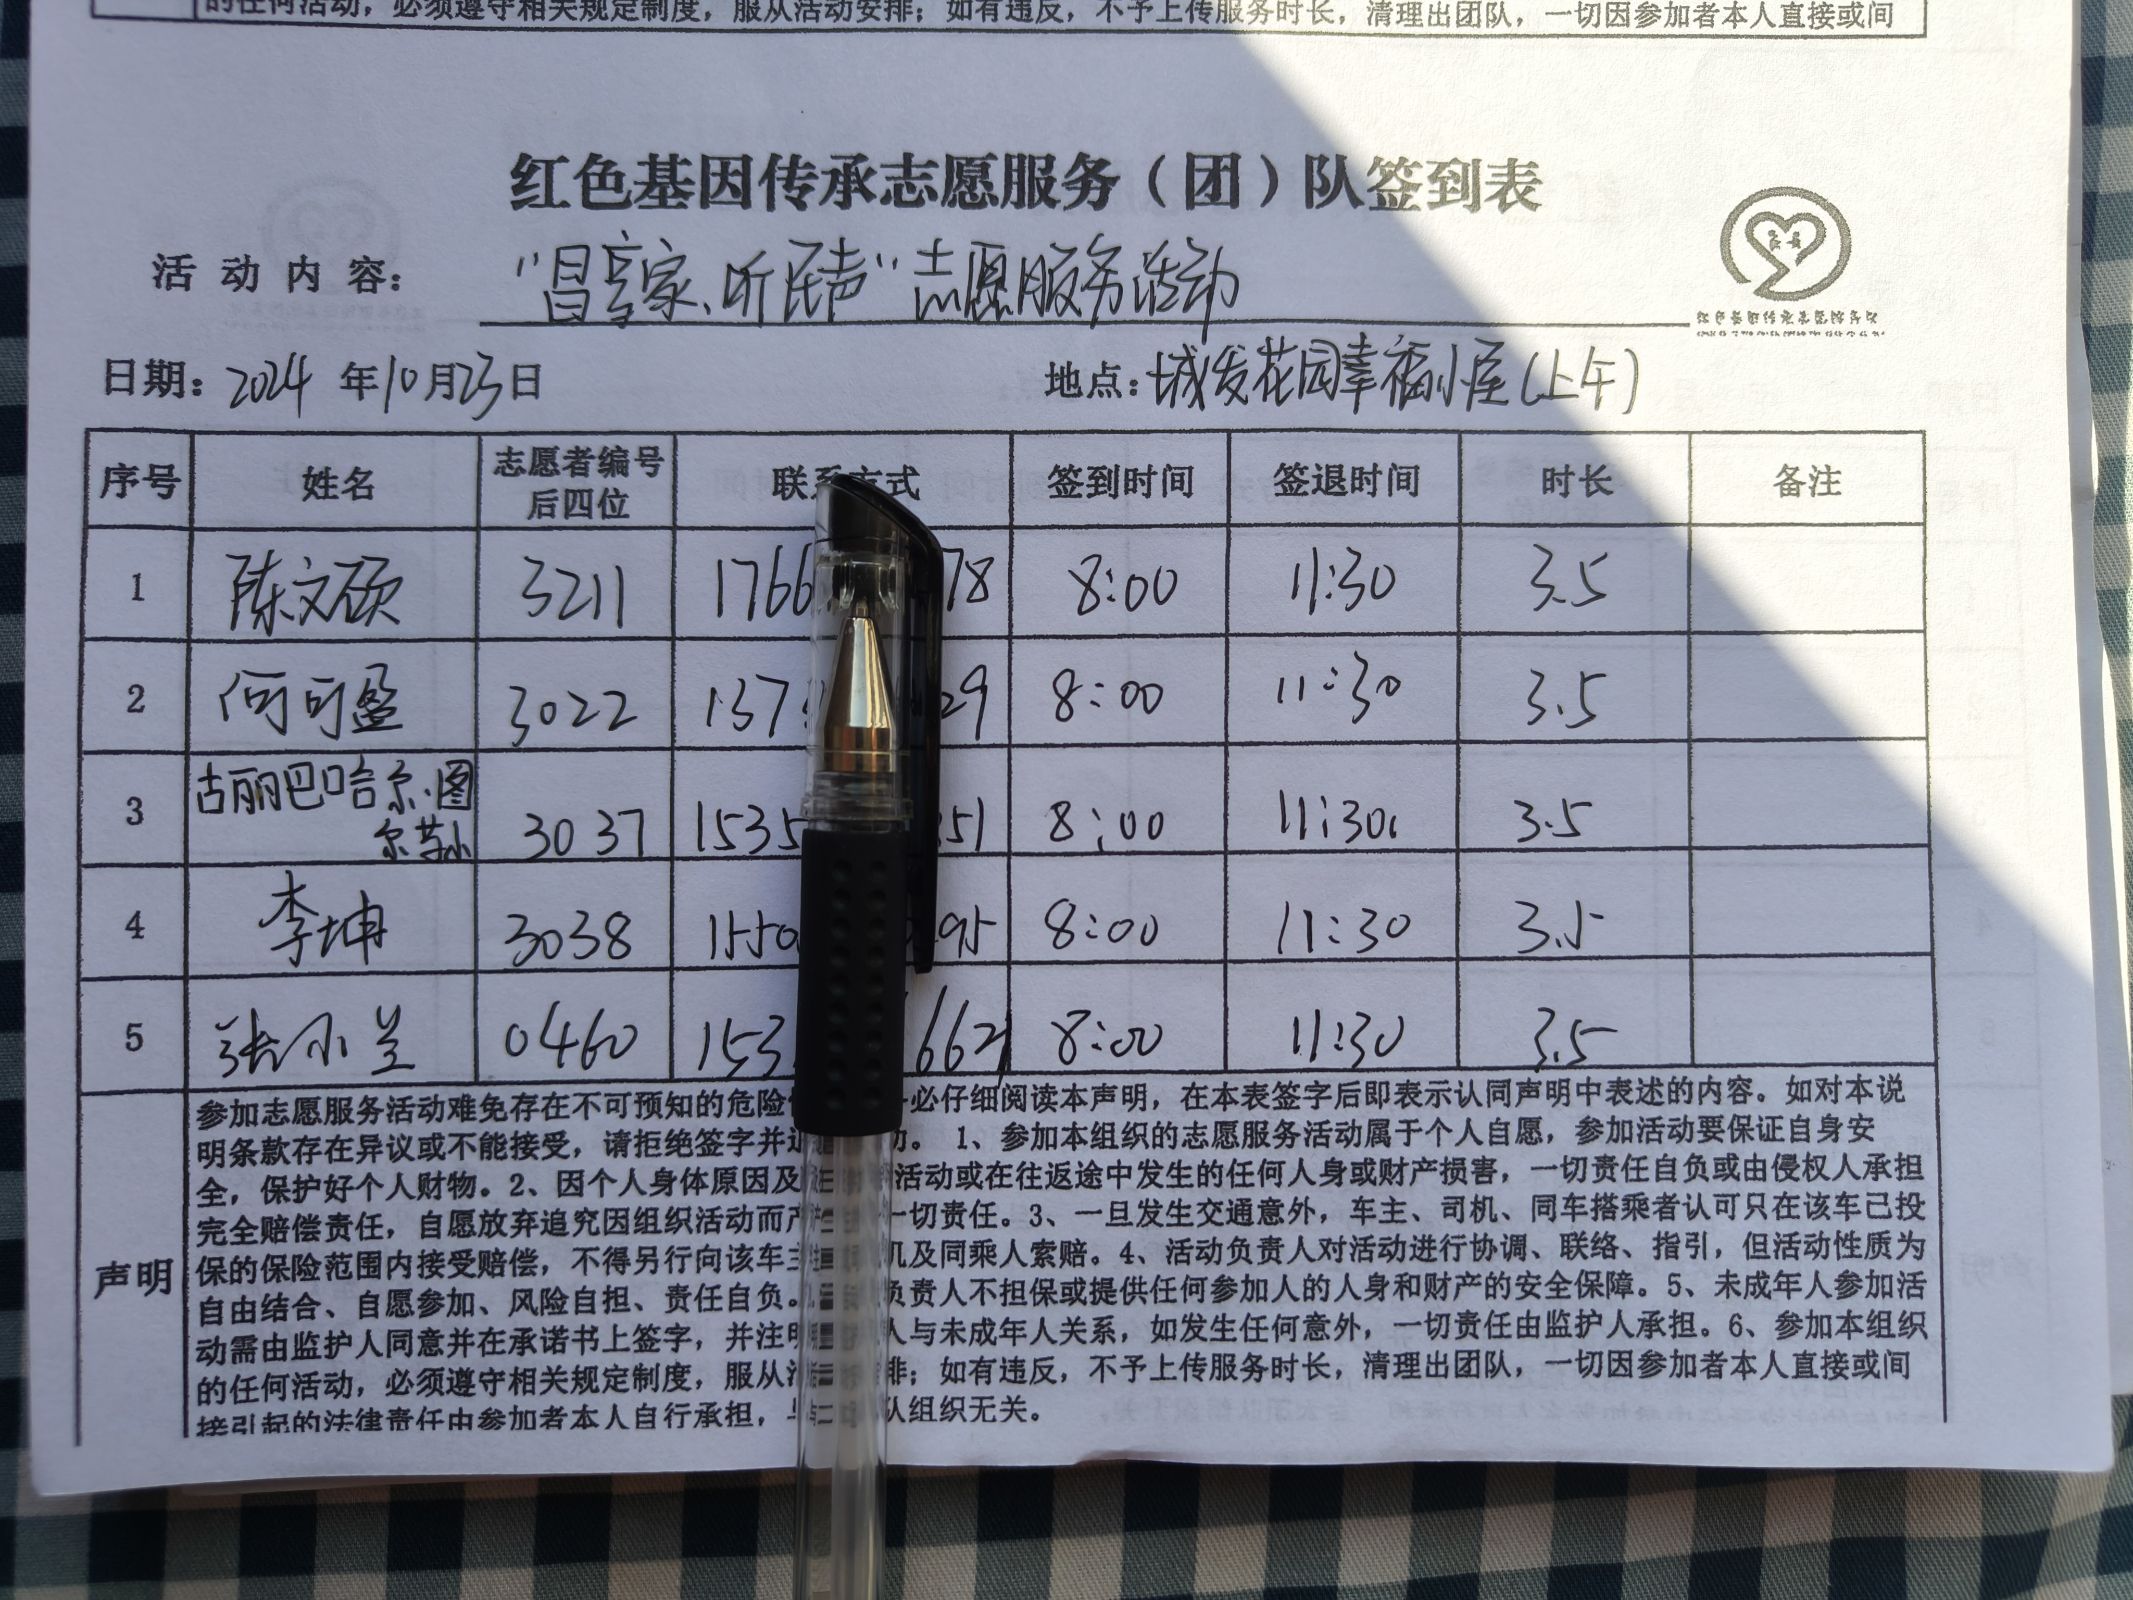 的任何活动，必须遵守相关规定制度，服从活动安排；如有违反，不予上传服务时长，清理出团队，一切因参加者本人直接或间
红色基因传承志愿服务（团）队签到表
活动内容： “昌享家、听民声”志愿服务活动
日期：2024 年10月23日 地点：城发花园幸福小屋（上午）
序号 姓名 志愿者编号后四位 联系方式 签到时间 签退时间 时长 备注
1 陈文硕 3211 1766 78 8:00 11:30 3.5
2 何可盈 3022 137 29 8:00 11:30 3.5
3 古丽巴哈尔·图尔荪 3037 1535 51 8:00 11:30 3.5
4 李坤 3038 1550 95 8:00 11:30 3.5
5 张小兰 0460 153 662 8:00 11:30 3.5
声明
参加志愿服务活动难免存在不可预知的危险 必仔细阅读本声明，在本表签字后即表示认同声明中表述的内容。如对本说
明条款存在异议或不能接受，请拒绝签字并 。 1、参加本组织的志愿服务活动属于个人自愿，参加活动要保证自身安
全，保护好个人财物。2、因个人身体原因及 活动或在往返途中发生的任何人身或财产损害，一切责任自负或由侵权人承担
完全赔偿责任，自愿放弃追究因组织活动而产 一切责任。3、一旦发生交通意外，车主、司机、同车搭乘者认可只在该车已投
保的保险范围内接受赔偿，不得另行向该车主 机及同乘人索赔。4、活动负责人对活动进行协调、联络、指引，但活动性质为
自由结合、自愿参加、风险自担、责任自负。 负责人不担保或提供任何参加人的人身和财产的安全保障。5、未成年人参加活
动需由监护人同意并在承诺书上签字，并注明 人与未成年人关系，如发生任何意外，一切责任由监护人承担。6、参加本组织
的任何活动，必须遵守相关规定制度，服从 排；如有违反，不予上传服务时长，清理出团队，一切因参加者本人直接或间
接引起的法律责任由参加者本人自行承担， 队组织无关。